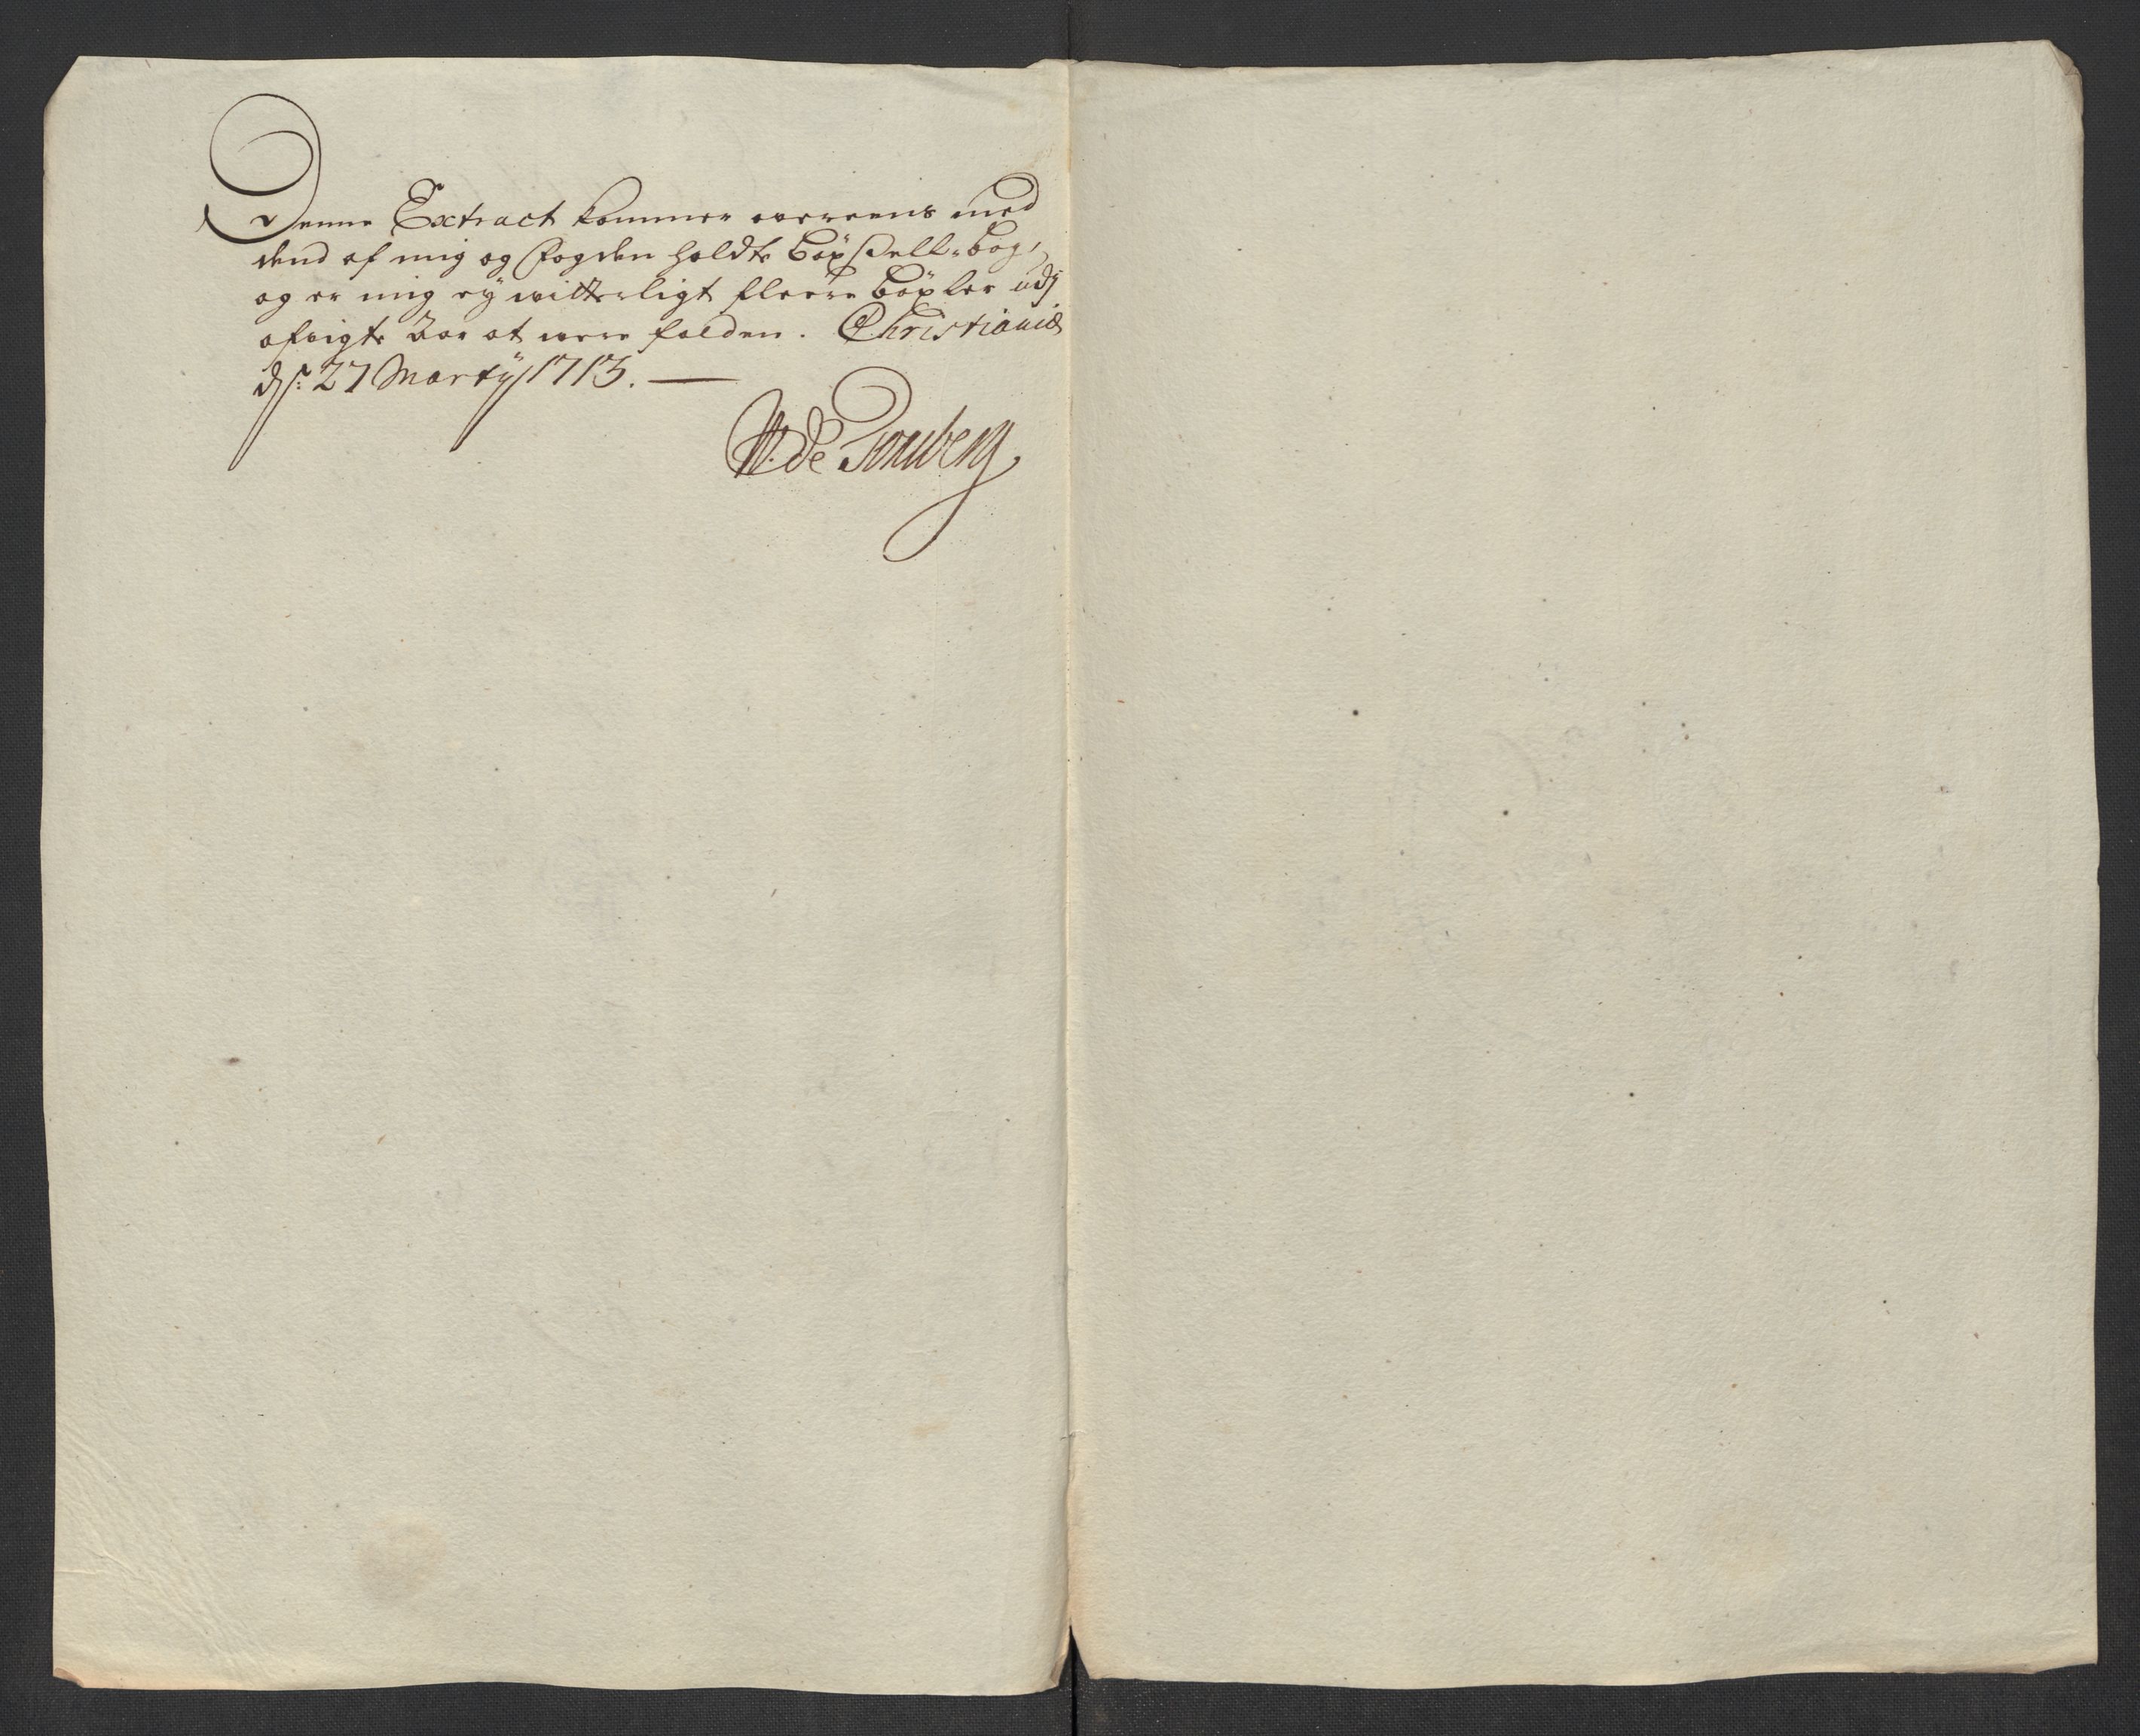 Denne Extract kommer overeens med
dend af mig og Fogden holdte böxsell-bog,
og er mig ey witterligt fleere böxler udj
afvigte Aar at were falden. Christiania
ds: 27 Martij 1713.
W. de Tonsberg